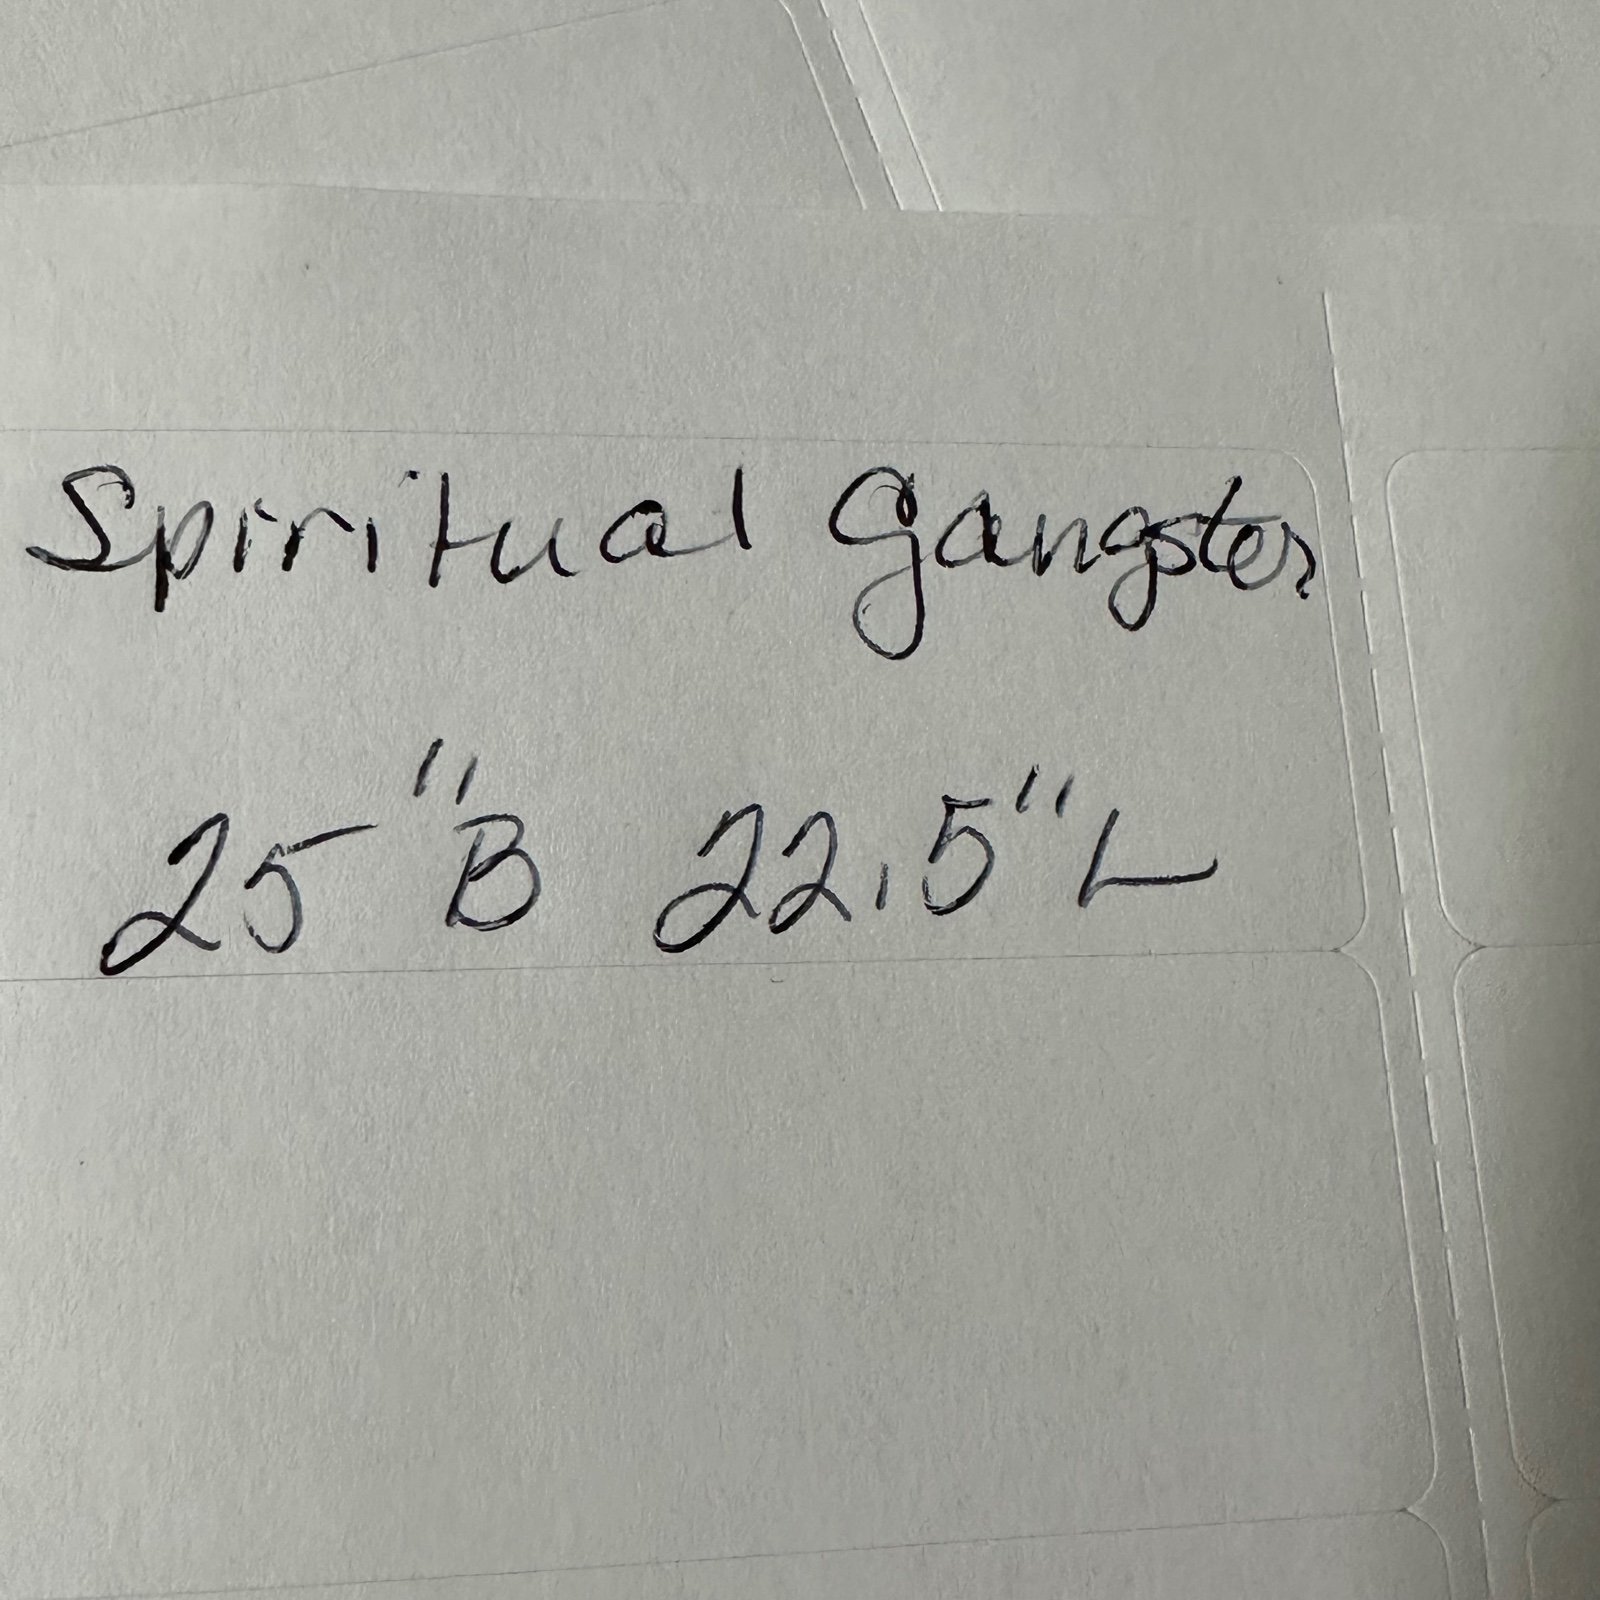 Spiritual Gangster
25"B 22.5"L